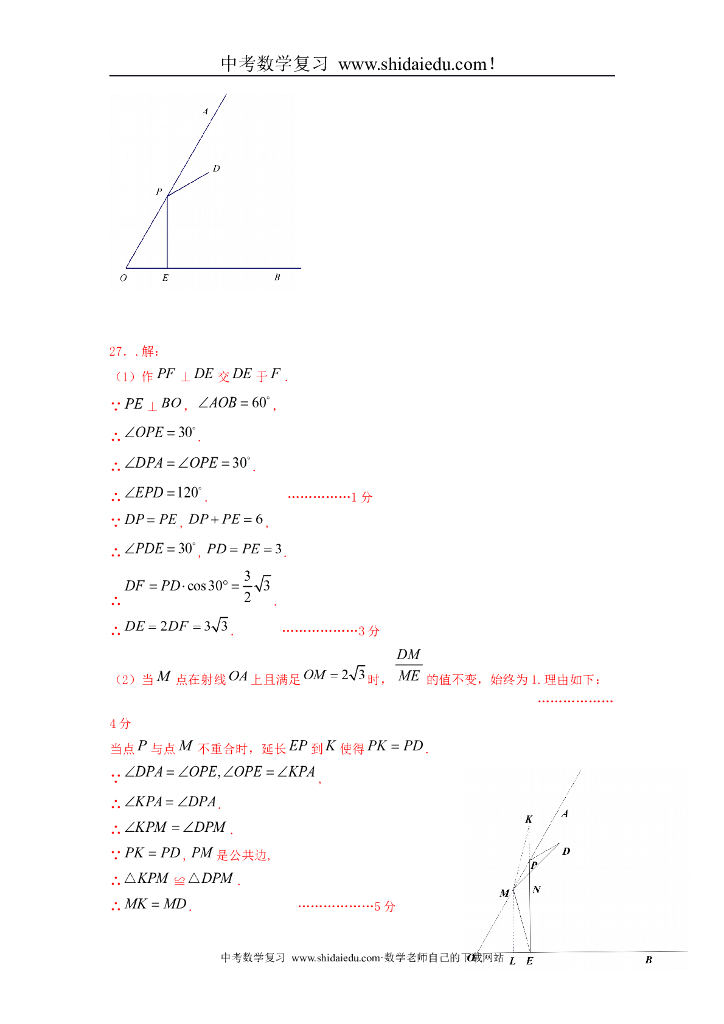 中考数学复习 www.shidaiedu.com!
A
D
P
O E B
27. .解:
(1)作 PF ⊥ DE 交 DE 于 F .
∵ PE ⊥ BO , ∠AOB = 60°,
∴ ∠OPE = 30°.
∴ ∠DPA = ∠OPE = 30°.
∴ ∠EPD = 120°. ……………1 分
∵ DP = PE , DP + PE = 6 ,
∴ ∠PDE = 30°, PD = PE = 3 .
∴ DF = PD·cos30° = 3/2 √3 .
∴ DE = 2DF = 3√3 . ………………3 分
(2)当 M 点在射线 OA 上且满足 OM = 2√3 时, DM/ME 的值不变,始终为 1.理由如下:
………………
4 分
当点 P 与点 M 不重合时,延长 EP 到 K 使得 PK = PD .
∵ ∠DPA = ∠OPE, ∠OPE = ∠KPA ,
∴ ∠KPA = ∠DPA .
∴ ∠KPM = ∠DPM .
∵ PK = PD , PM 是公共边,
∴ △KPM ≌ △DPM .
∴ MK = MD . ………………5 分
K A
D
P
M N
O L E B
中考数学复习 www.shidaiedu.com·数学老师自己的下载网站